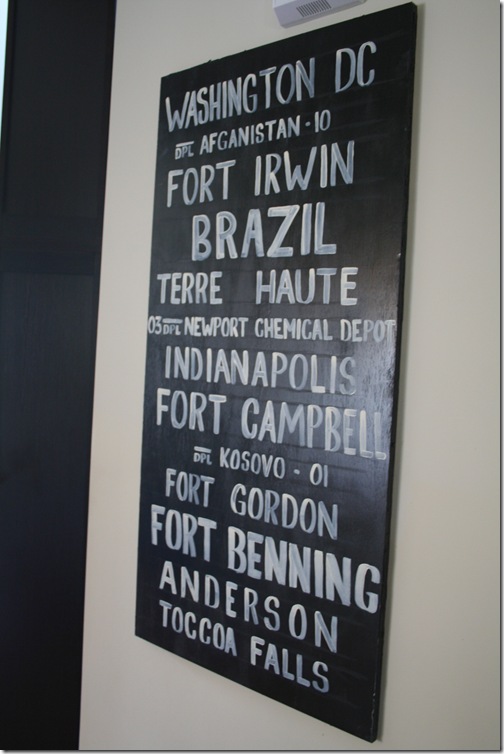 WASHINGTON DC
DPL AFGANISTAN - 10
FORT IRWIN
BRAZIL
TERRE HAUTE
03 DPL NEWPORT CHEMICAL DEPOT
INDIANAPOLIS
FORT CAMPBELL
DPL KOSOVO - 01
FORT GORDON
FORT BENNING
ANDERSON
TOCCOA FALLS